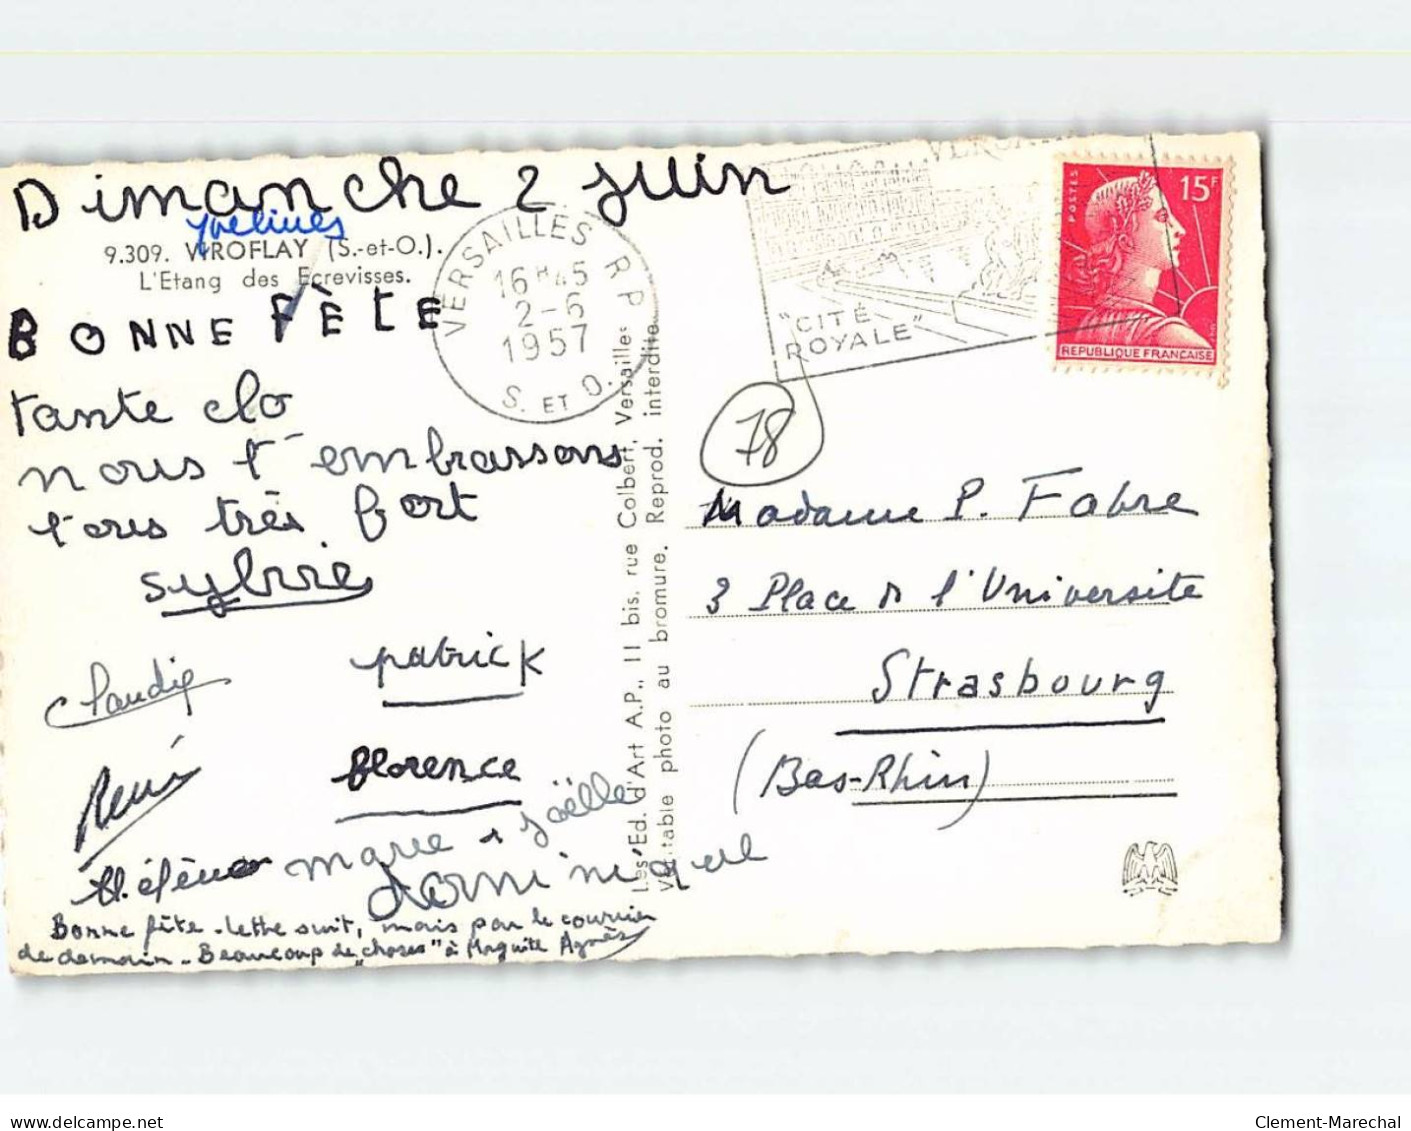 Dimanche 2 juin
yvelines
9.309. VIROFLAY (S.-et-O.).
L'Etang des Ecrevisses.
BONNE FÊTE
tante clo
nous t'embrassons
tous très fort
sylvie
Claudie
patrick
René
florence
Hélène marie - joëlle
dominique
Bonne fête - lettre suit, mais par le courrier
de demain - Beaucoup de "choses" à Marguite Agnès
VERSAILLES R.P.
16H45
2-6
1957
S. ET O.
"CITÉ
ROYALE"
POSTES
15F
REPUBLIQUE FRANÇAISE
78
Les Ed. d'Art A.P., 11 bis, rue Colbert, Versailles
Véritable photo au bromure. Reprod. interdite
Madame P. Fabre
3 Place de l'Université
Strasbourg
(Bas-Rhin)
delcampe.net
Clement-Marechal